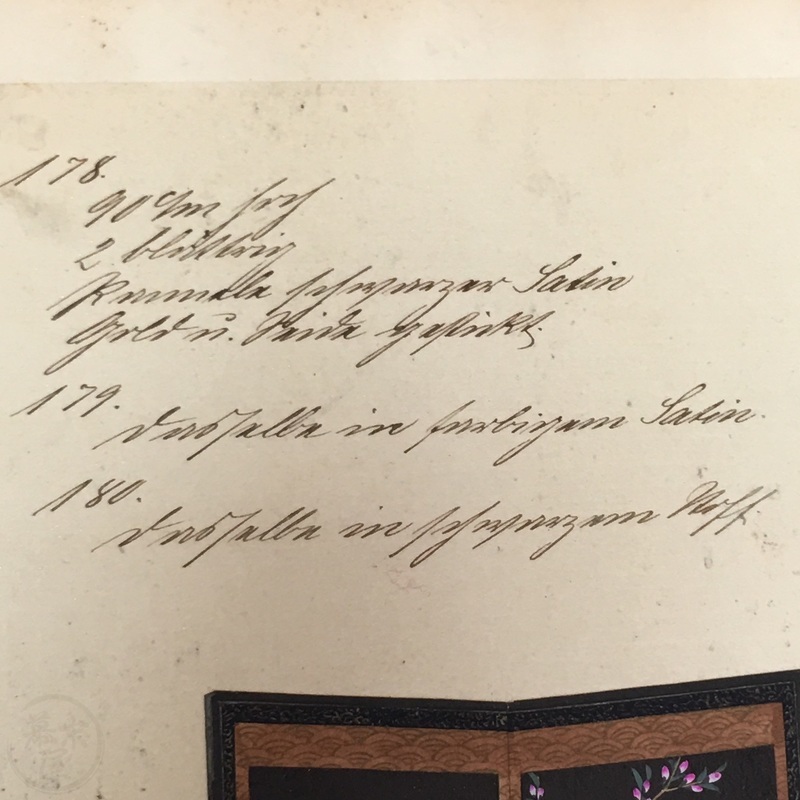 178.
90 c/m hoch
2 blättrig
schwarzer Satin
Gold u. Seide gestickt.
179.
dasselbe in farbigem Satin.
180.
dasselbe in schwarzem